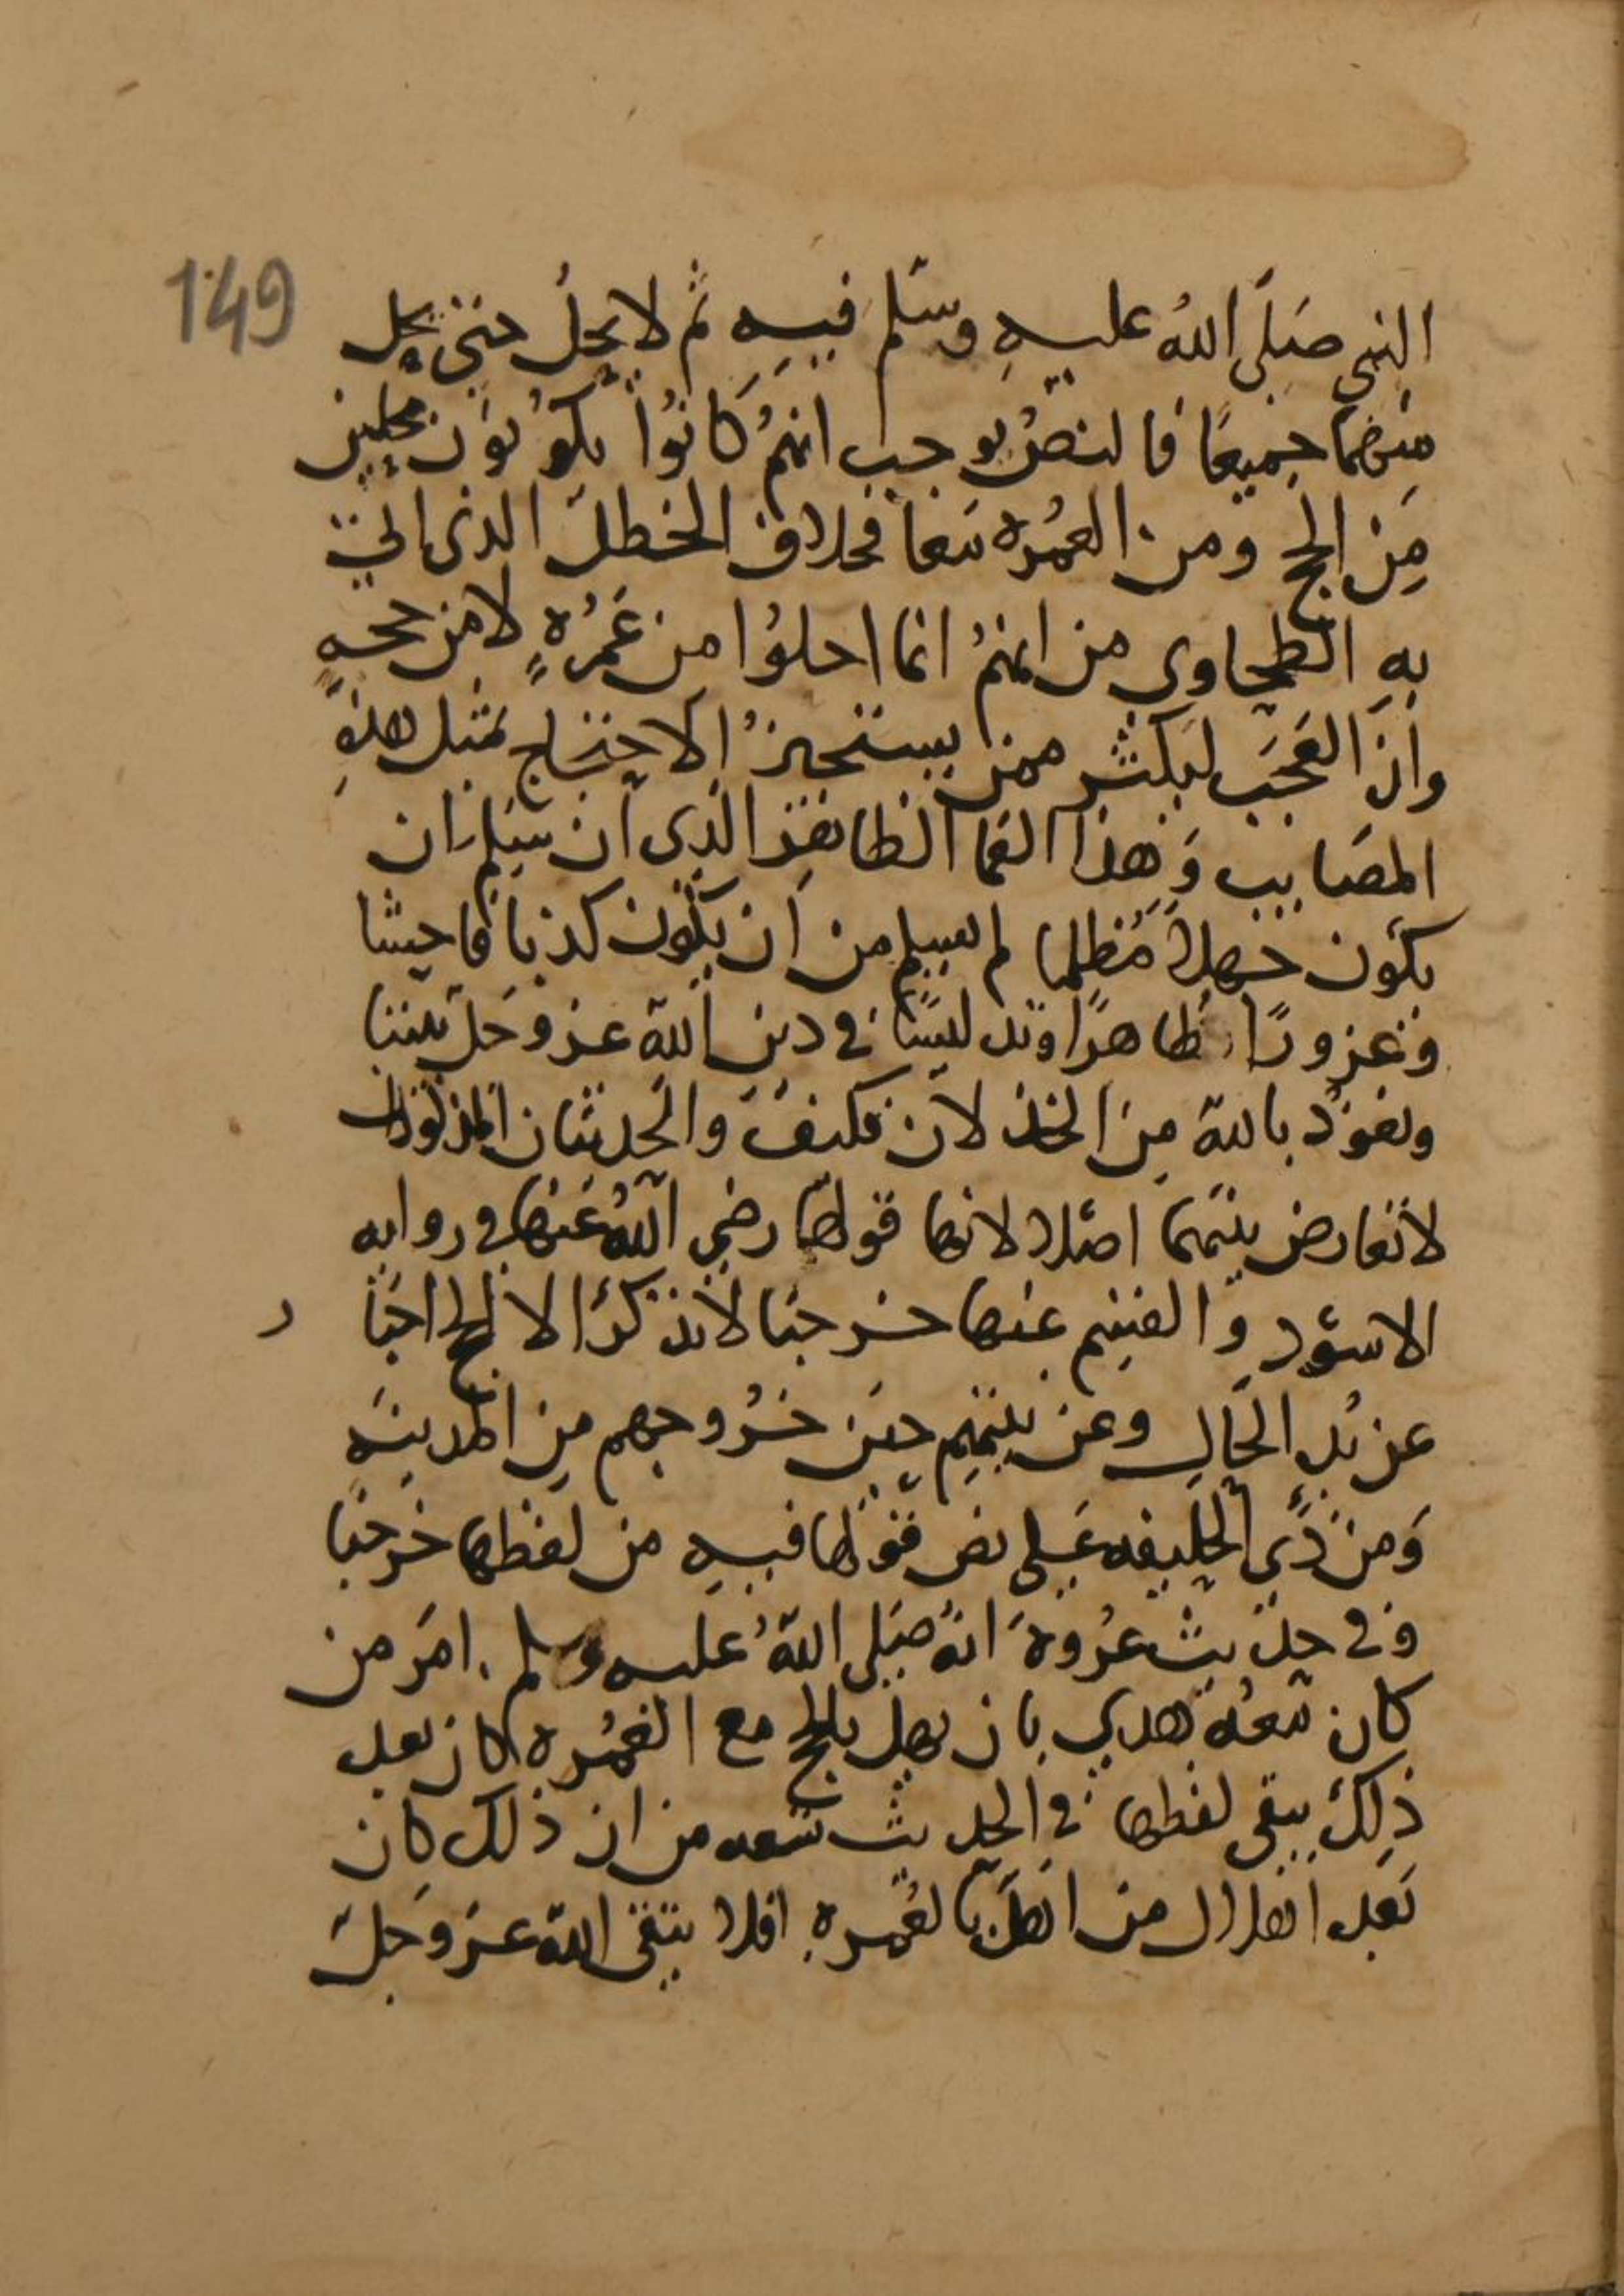 149
النبي صَلَّى اللهُ عليهِ وسَلم فيهِ ثم لا يحِلُ حتى يحِل
مِنهمَا جميعًا فالنصُ يوجب انهمُ كَانوُا يكوُنوَن محِلين
مِن الحج ومن العُمرُه مَعا بخلاف الخطلَ الذى اتى
بهِ الطحاوي من انهمُ انما احلوُا من عُمَرُهٍ لا من حجهٍ
وانَ العَجَبَ ليكثر ممن يستجيزُ الاحتجاج بمَثل هذهِ
المصَايب وَهذا العَما الذى ان سَلم ان
يكوُن جهلاً مُظلِما لم يسلم من اَن يكوُن كذبا فاحِشا
وغرورًا ظاهرًا وتدليسًا في دين اللهَ عز وجَل
ونعوُذ باللهَ مِنَ الخذلان فكيفَ والحَديثان المذكوران
لا تعارض بينهَما اصَلا لان قولهَا رضي اللهُ عَنها في روايه
الاسوَد والقسِم عنها خرجنا لا نذكرُ الا الحج اخبَا
ر
عن بُدِ الحَال وعن نيتهِم حيَن خرُوجهم مِن المدينَه
وَمن ذي الحُليفه عَلى نص قولها فيهِ من لفظها خرجَنا
وفي حديث عرُوةَ انهُ صَلى اللهُ عليه وسلم امَر من
كان مَعهُ هدي بان يهل بالحج مع العُمرُه كان بعد
ذلِكَ يبقى لفظها في الحديث نفسه من ان ذلك كان
بَعد اهلال من اهَلَ بالعُمره افلا يتقى اللهَ عَز وجَلَ